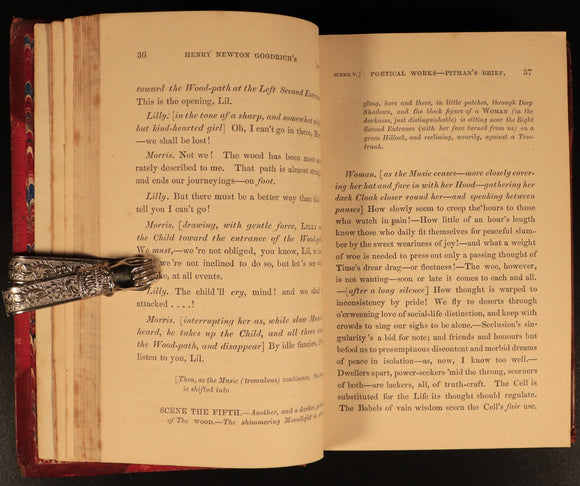 36 HENRY NEWTON GOODRICH'S
toward the Wood-path at the Left Second Entran
This is the opening, Lil.
Lilly. [in the tone of a sharp, and somewhat
but kind-hearted girl] Oh, I can't go in there,
—we shall be lost!
Morris. Not we! The wood has been most
rately described to me. That path is almost
and ends our journeyings—on foot.
Lilly. But there must be a better way than
tell you I can't go!
Morris. [drawing, with gentle force, LILLY
the Child toward the entrance of the Wood-pa
We must,—we're not obliged, you know, Lil, to
we're not inclined to do so, but let's see
ke, at all events.
Lilly. The child'll cry, mind! and we shall
attacked . . . .!
Morris. [interrupting her as, while slow Music
heard, he takes up the Child, and all three
the Wood-path, and disappear] By idle fancies,
listen to you, Lil.
[Then, as the Music (tremulous) continues, the
is shifted into
SCENE THE FIFTH.—Another, and a darker,
of The WOOD.—The shimmering Moonlight is
SCENE V.] POETICAL WORKS—PITMAN'S BRIEF. 37
gling, here and there, in little patches, through Deep
Shadows, and the black figure of a WOMAN (in the
darkness, just distinguishable) is sitting near the Right
Second Entrance (with her face turned from us) on a
green Hillock, and reclining, wearily, against a Tree-
trunk.
Woman. [as the Music ceases—more closely cover-
ing her hat and face in with her Hood—gathering her
dark Cloak closer round her—and speaking between
pauses] How slowly seem to creep the hours to those
who watch in pain!—How little of an hour's length
know those who daily fit themselves for peaceful slum-
ber by the sweet weariness of joy!—and what a weight
of woe is needed to press out only a passing thought of
Time's drear drug—or fleetness!—The woe, however,
is not wanting—soon or late it comes to each and all.
—[after a long silence] How thought is warped to
inconsistency by pride! We fly to deserts through
o'erweening love of social-life distinction, and keep with
crowds to sing our sighs to be alone.—Seclusion's sin-
gularity's a bid for note; and friends and honours but
befool us to presumptuous discontent and morbid dreams
of peace in isolation—as, now, I know too well.—
Dwellers apart, power-seekers 'mid the throng, scorners
of both—are lackers, all, of truth-craft. The Cell is
substituted for the Life its thought should regulate.
The Babels of vain wisdom scorn the Cell's fair use.